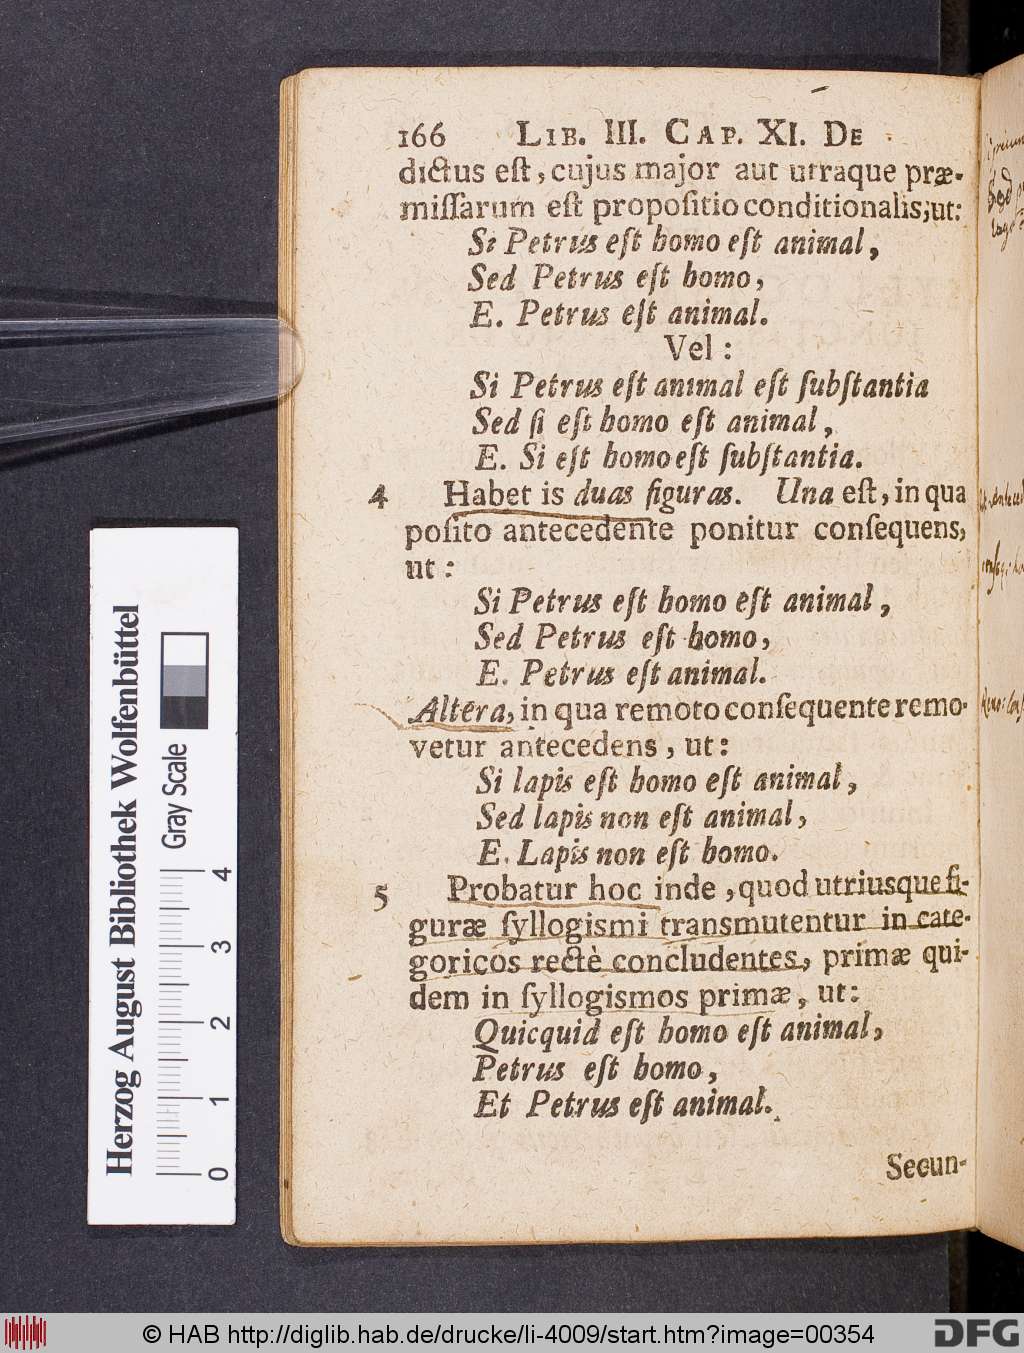 166 LIB. III. CAP. XI. DE
dictus eſt, cujus major aut utraque præ-
miſſarum eſt propoſitio conditionalis; ut:
Si Petrus eſt homo eſt animal,
Sed Petrus eſt homo,
E. Petrus eſt animal.
Vel:
Si Petrus eſt animal eſt ſubſtantia
Sed ſi eſt homo eſt animal,
E. Si eſt homo eſt ſubſtantia.
4 Habet is duas figuras. Una eſt, in qua
poſito antecedente ponitur conſequens,
ut:
Si Petrus eſt homo eſt animal,
Sed Petrus eſt homo,
E. Petrus eſt animal.
Altera, in qua remoto conſequente remo-
vetur antecedens, ut:
Si lapis eſt homo eſt animal,
Sed lapis non eſt animal,
E. Lapis non eſt homo.
5 Probatur hoc inde, quod utriusque fi-
guræ ſyllogismi transmutentur in cate-
goricos rectè concludentes, primæ qui-
dem in ſyllogismos primæ, ut:
Quicquid eſt homo eſt animal,
Petrus eſt homo,
Et Petrus eſt animal.
Secun-
Herzog August Bibliothek Wolfenbüttel
Gray Scale
0 1 2 3 4
© HAB http://diglib.hab.de/drucke/li-4009/start.htm?image=00354
DFG